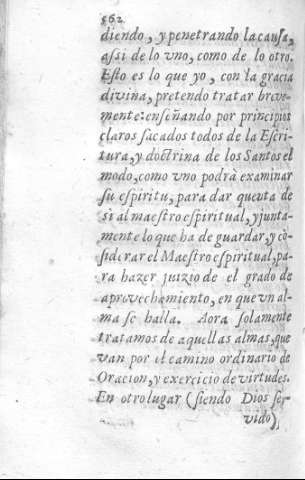 862
diendo, y penetrando la causa,
assi de lo vno, como de lo otro.
Esto es lo que yo, con la gracia
divina, pretendo tratar breve-
mente: enseñando por principios
claros sacados todos de la Escri-
tura, y doctrina de los Santos el
modo, como vno podrà examinar
su espiritu, para dar quenta de
si al maestro espiritual, y junta-
mente lo que ha de guardar, y cõ-
siderar el Maestro espiritual, pa-
ra hazer juizio de el grado de
aprovechamiento, en que vn al-
ma se halla. Aora solamente
tratamos de aquellas almas, que
van por el camino ordinario de
Oracion, y exercicio de virtudes.
En otro lugar (siendo Dios ser-
vido)